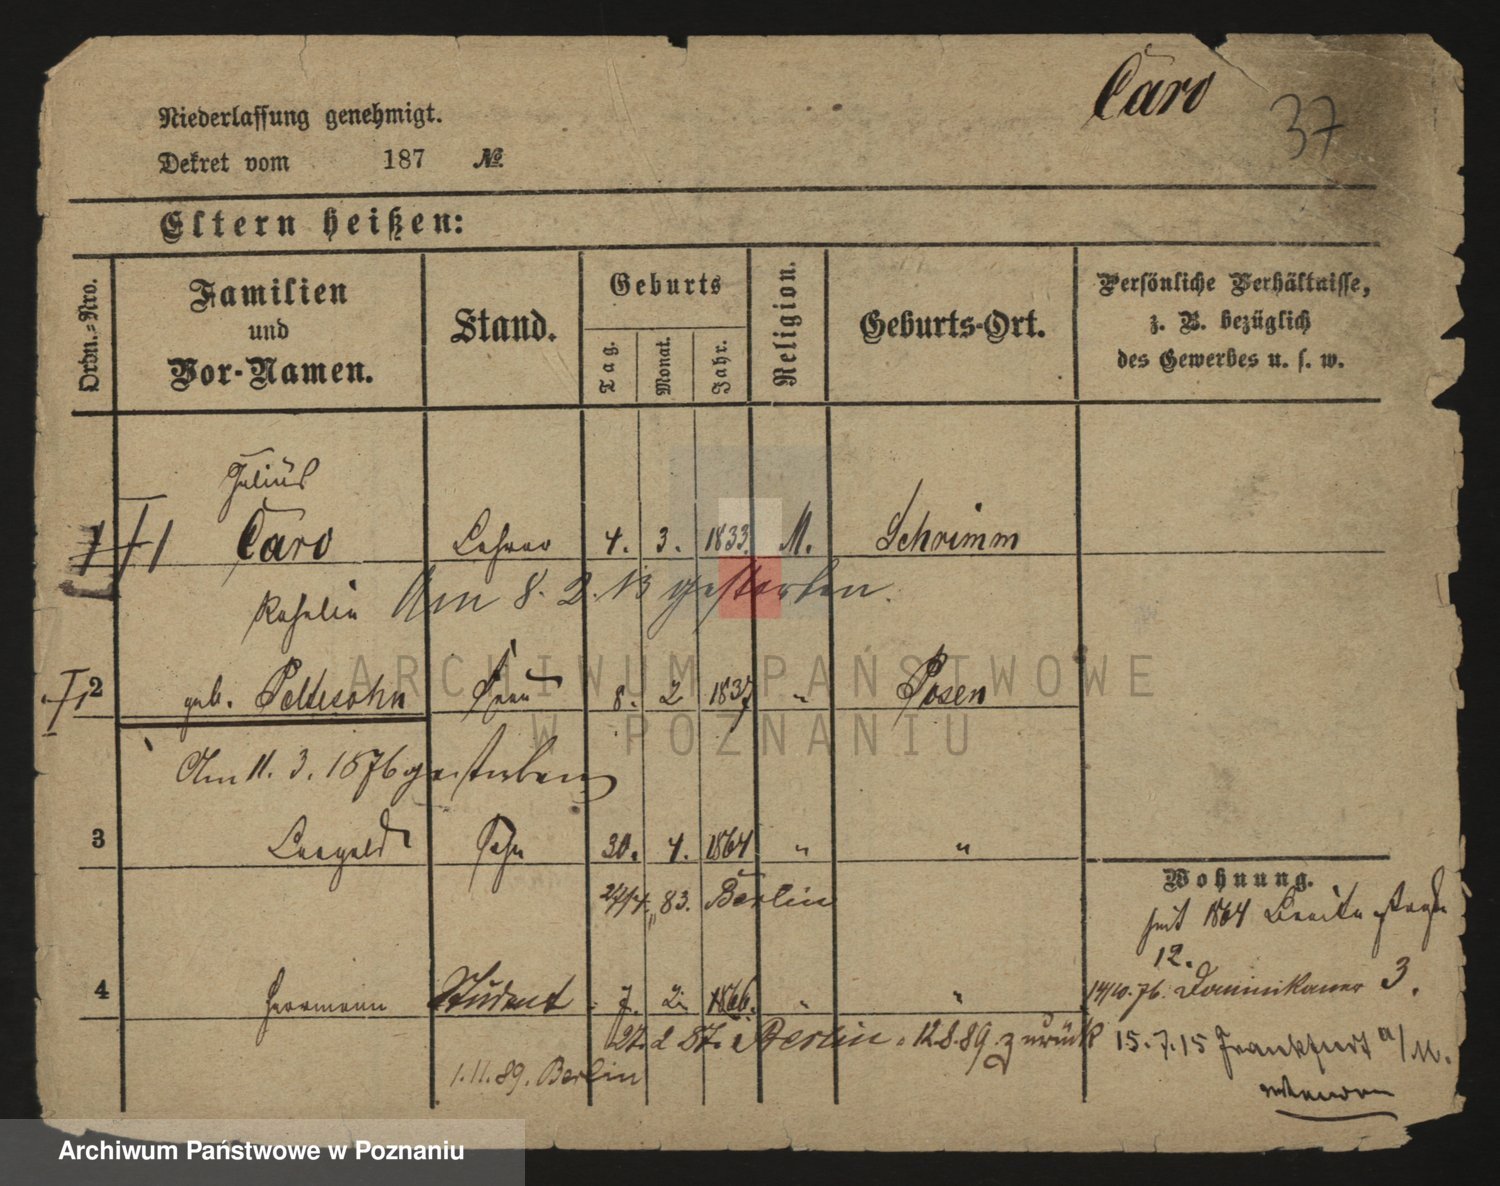 Caro
37
Niederlassung genehmigt.
Dekret vom 187 №
Eltern heißen:
Ordn.-Nro.
Familien und Vor-Namen.
Stand.
Geburts
Tag. Monat. Jahr.
Religion.
Geburts-Ort.
Persönliche Verhältnisse, z. B. bezüglich des Gewerbes u. s. w.
Julius
1 Caro Lehrer 4. 3. 1833 M. Schrimm
Am 8. 2. 13 gestorben.
2 geb. Peltesohn Frau 8. 2 1837 " Posen
Am 11. 3. 1876 gestorben
3 Leopold Sohn 30. 4. 1864 " "
83. Berlin
Wohnung.
seit 1864 Breite Straße
12.
4 Herrmann Student 7. 2. 1866. " "
14/10.76. Dominikaner 3.
27. 2 87. Berlin. 12.8.89. zurück
15.7.15 Frankfurt a/M.
1.11.89. Berlin
ARCHIWUM PAŃSTWOWE
W POZNANIU
Archiwum Państwowe w Poznaniu